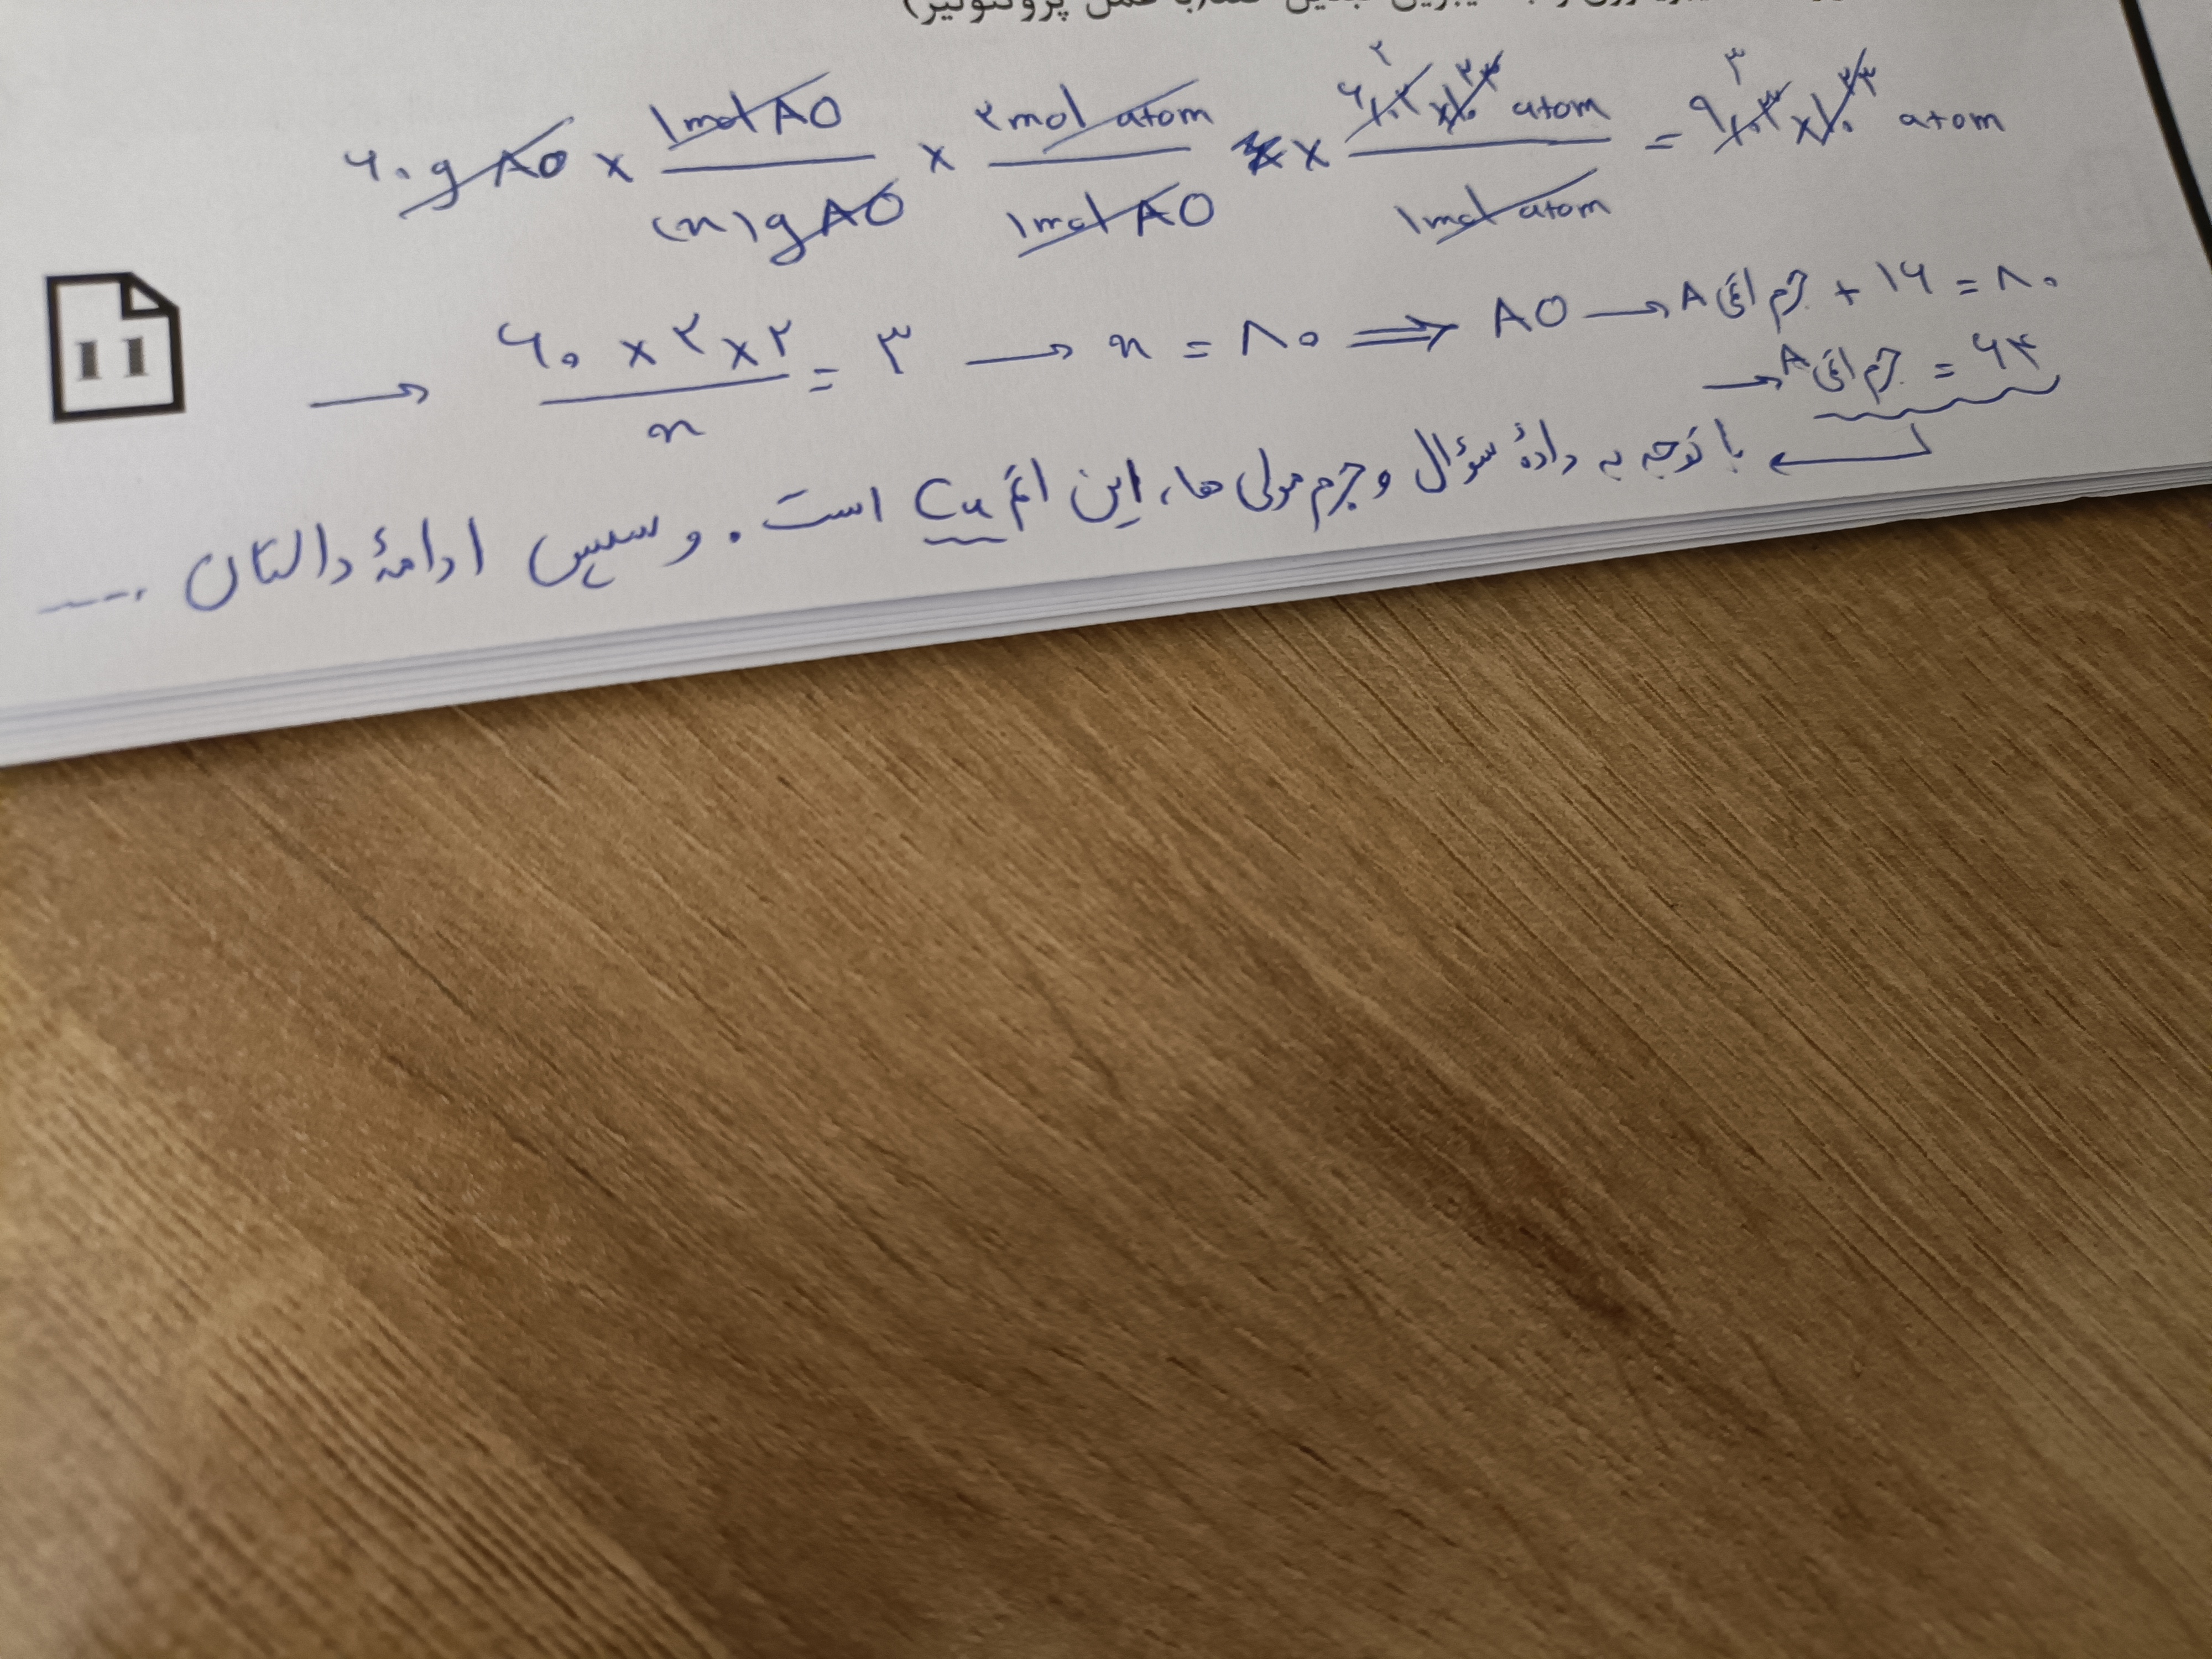 (با عمل پروتئولیز)
۶۰ g AO × ۱ mol AO / (n) g AO × ۲ mol atom / ۱ mol AO × ۶/۰۲ ۲ × ۱۰^۲۳ atom / ۱ mol atom = ۹/۰۳ ۳ × ۱۰^۲۳ atom
→ ۶۰ × ۲ × ۲ / n = ۳ → n = ۸۰ ⟹ AO → A جرم اتمی + ۱۶ = ۸۰
→ A جرم اتمی = ۶۴
با توجه به دادهٔ سؤال و جرم مولی ها، این اتم Cu است. و سپس ادامهٔ داستان ....
11